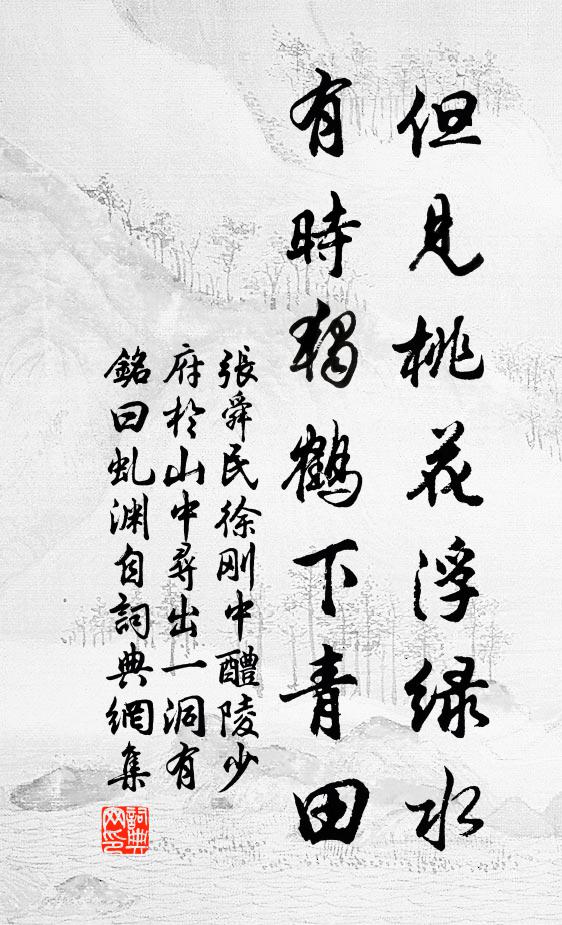 但見桃花浮绿水
有時獨鶴下青田
張舜民徐剛中醴陵少
府於山中尋出一洞有
銘曰虬渊自詞典網集
詞典
网印